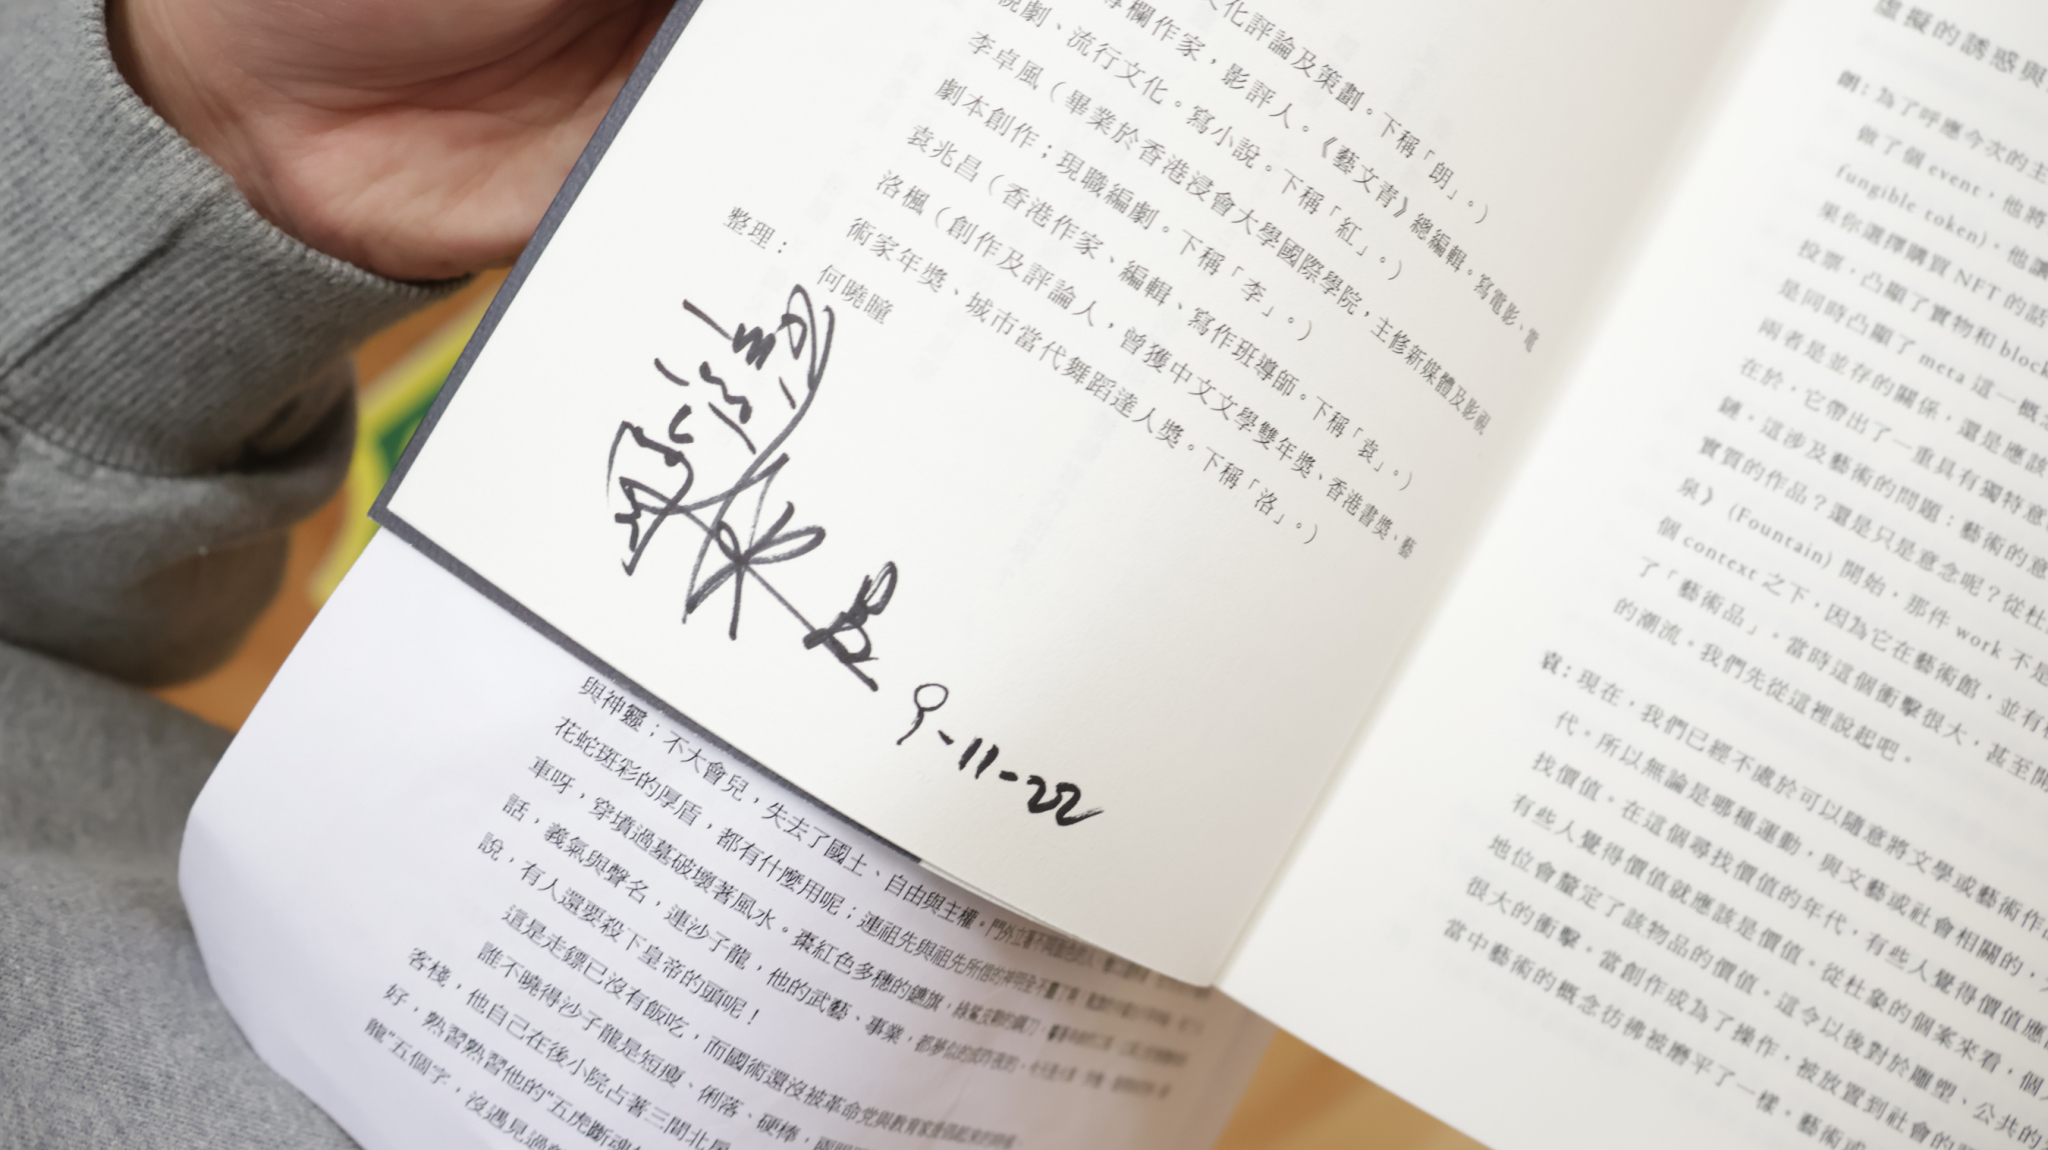 文化評論及策劃。下稱「朗」。)
專欄作家，影評人。《藝文青》總編輯。寫電影、電
視劇、流行文化。寫小說。下稱「紅」。)
李卓風（畢業於香港浸會大學國際學院，主修新媒體及影視
劇本創作；現職編劇。下稱「李」。)
袁兆昌（香港作家、編輯、寫作班導師。下稱「袁」。)
洛楓（創作及評論人，曾獲中文文學雙年獎、香港書獎、藝
術家年獎、城市當代舞蹈達人獎。下稱「洛」。)
整理：何曉瞳
9-11-22
虛擬的誘惑與
朗：為了呼應今次的主
做了個 event，他將
fungible token)，他講
果你選擇購買 NFT 的話
投票，凸顯了實物和 block
是同時凸顯了 meta 這一概
兩者是並存的關係，還是應該
在於，它帶出了一重具有獨特意
鏈，這涉及藝術的問題：藝術的意
實質的作品？還是只是意念呢？從杜
泉》(Fountain) 開始，那件 work 不是
個 context 之下，因為它在藝術館，並有
了「藝術品」。當時這個衝擊很大，甚至開
的潮流。我們先從這裡說起吧。
袁：現在，我們已經不處於可以隨意將文學或藝術作
代，所以無論是哪種運動，與文藝或社會相關的，
找價值。在這個尋找價值的年代，有些人覺得價值應
有些人覺得價值就應該是價值。從杜象的個案來看，個
地位會釐定了該物品的價值。這令以後對於雕塑、公共的
很大的衝擊。當創作成為了操作，被放置到社會的
當中藝術的概念彷彿被磨平了一樣，藝術或
與神靈；不大會兒，失去了國土、自由與主權。門外立著不同面色的人，
花蛇斑彩的厚盾，都有什麼用呢；連祖先與祖先所信的神明全不靈了啊！
車呀，穿墳過墓破壞著風水。棗紅色多穗的鑣旗，綠鯊皮鞘的鋼刀，
話，義氣與聲名，連沙子龍，他的武藝、事業，都夢似的成昨夜的。
說，有人還要殺下皇帝的頭呢！
這是走鏢已沒有飯吃，而國術還沒被革命黨與教育家提倡起來的時候。
誰不曉得沙子龍是短瘦、俐落、硬棒，
客棧，他自己在後小院占著三間北房
好，熟習熟習他的“五虎斷魂
龍“五個字，沒遇見過